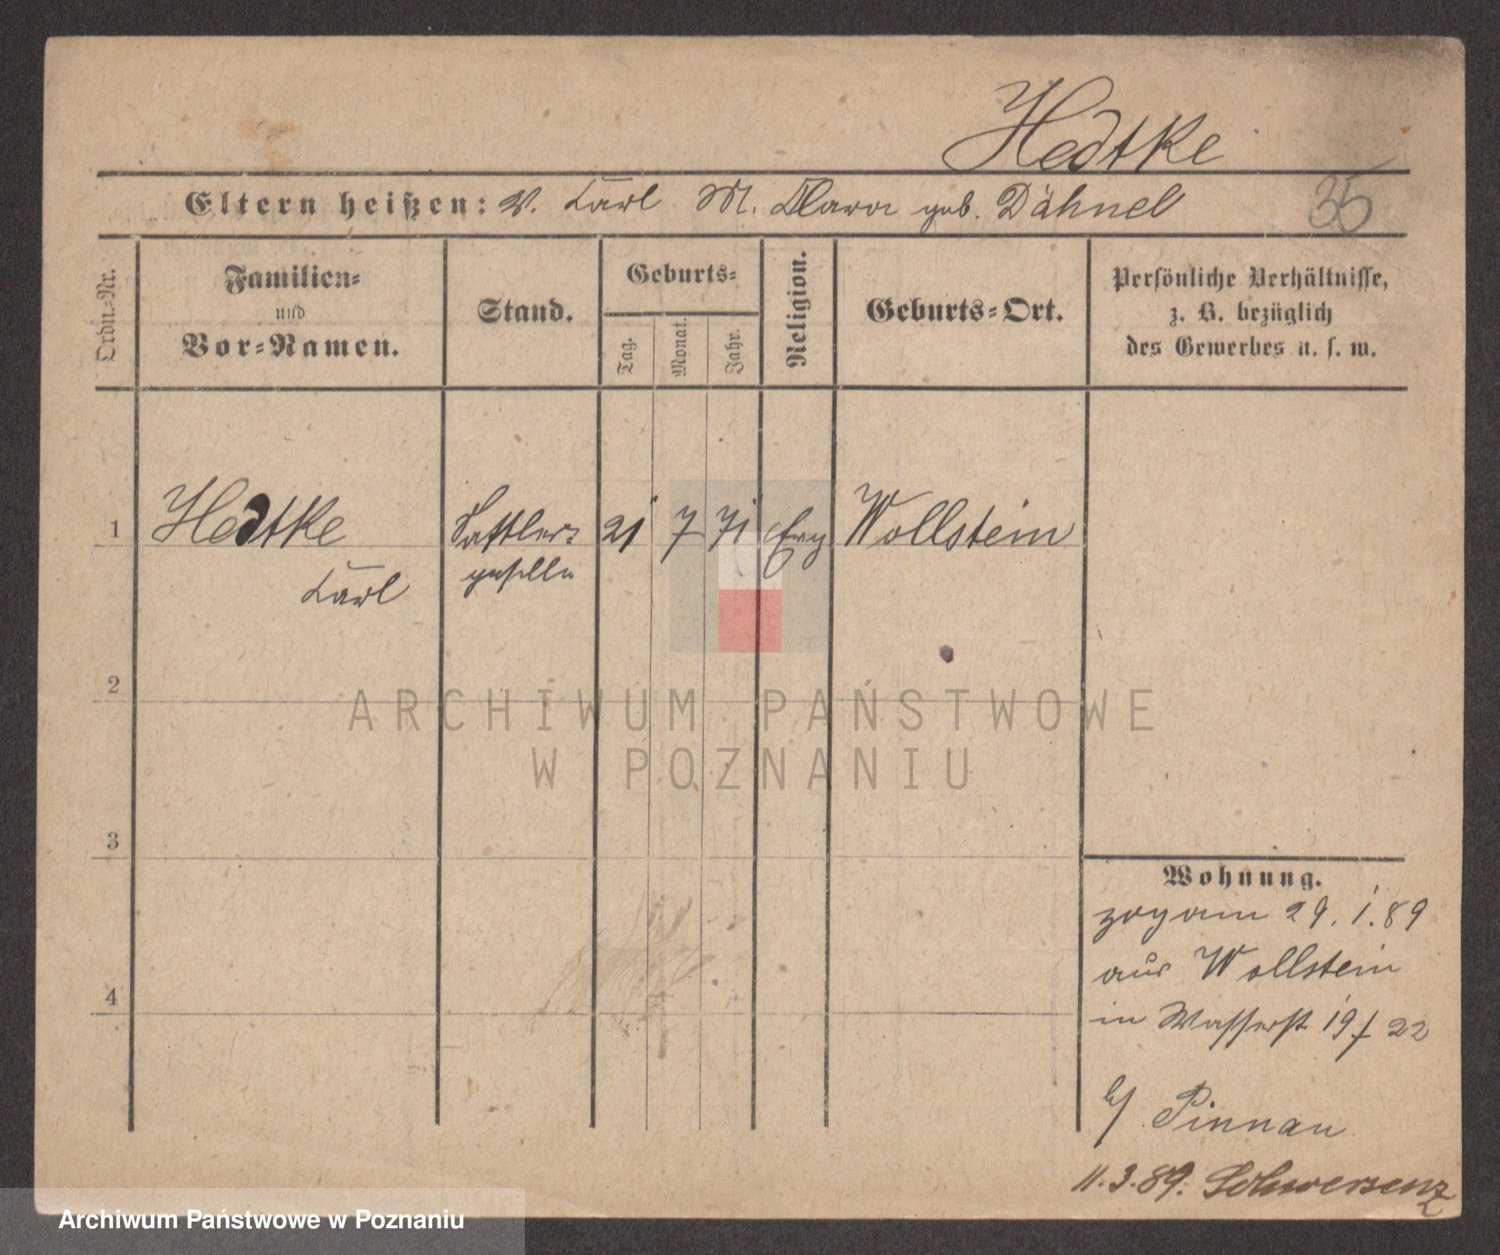 Hedtke
Eltern heißen: V. Karl M. Clara geb. Dähnel
35
Ordn.-Nr.
Familien-
und
Vor-Namen.
Stand.
Geburts-
Tag.
Monat.
Jahr.
Religion.
Geburts-Ort.
Persönliche Verhältnisse,
z. B. bezüglich
des Gewerbes u. s. w.
1 Hedtke Sattler- 21 7 71 Evg Wollstein
Karl geselle
2
3
4
Wohnung.
zog am 29. 1. 89
aus Wollstein
in Wasserst 19/22
b/ Pinnau
11.3.89. Schwersenz
ARCHIWUM PAŃSTWOWE
W POZNANIU
Archiwum Państwowe w Poznaniu